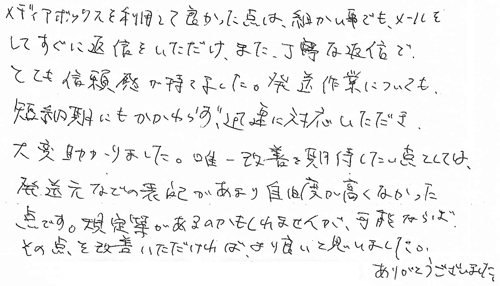 メディアボックスを利用して良かった点は、細かい事でも、メールを
してすぐに返信をいただけ、また、丁寧な返信で、
とても信頼感が持てました。発送作業についても、
短納期にもかかわらず、迅速に対応いただき、
大変助かりました。唯一改善を期待したい点としては、
発送元などの表記があまり自由度が高くなかった
点です。規定等があるのかもしれませんが、可能ならば、
その点を改善いただければ、より良いと思いました。
ありがとうございました。